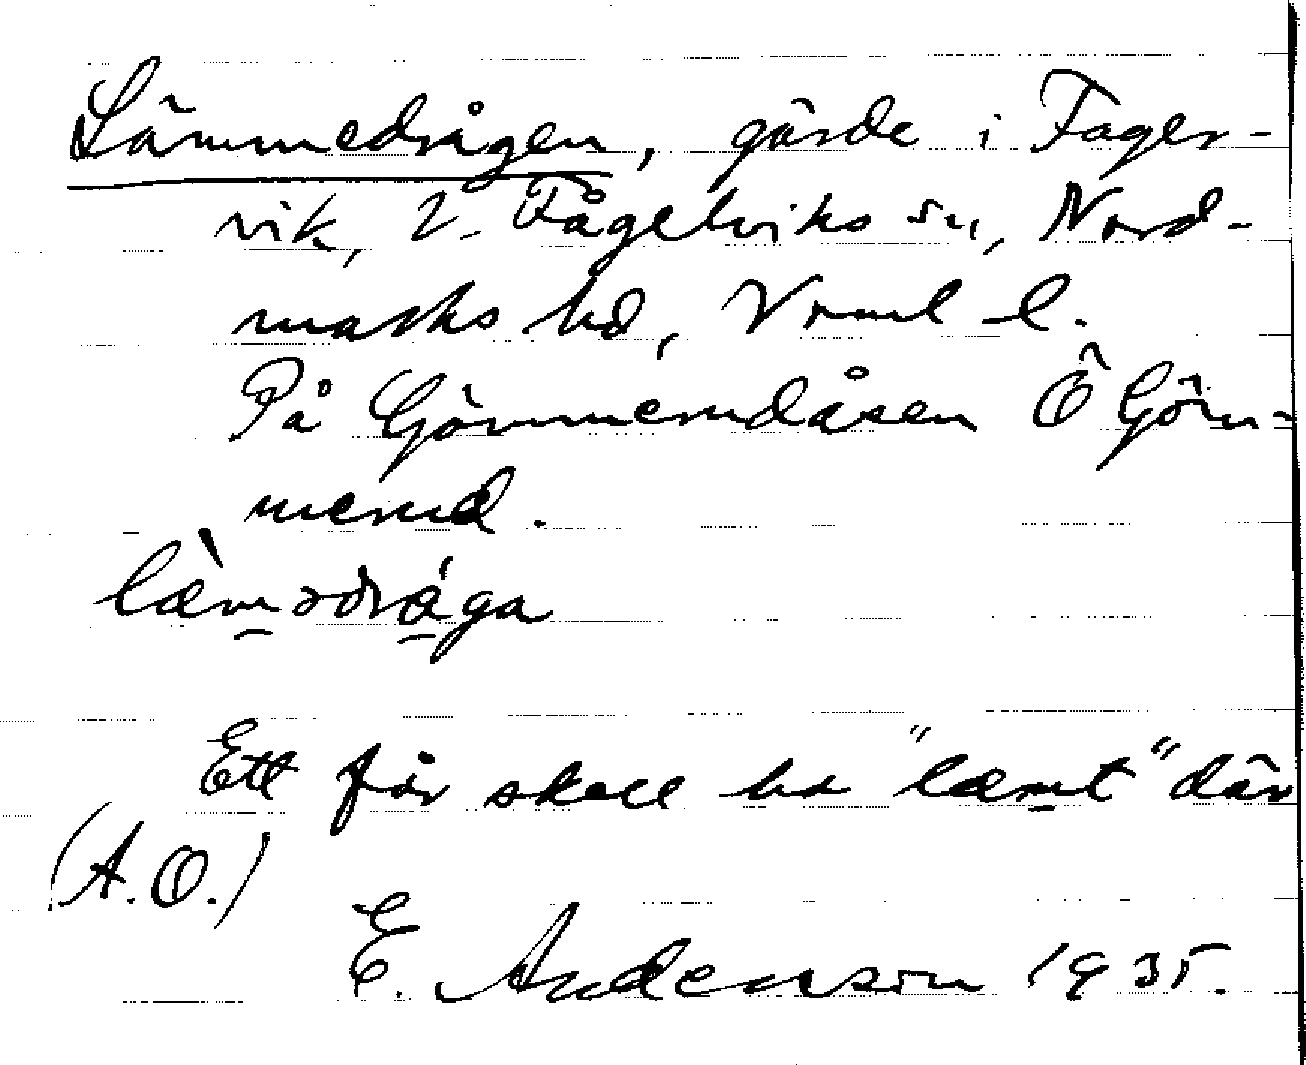 Lämmedrågen, gärde i Fager-
vik, V. Fågelviks sn, Nord-
marks hd, Vrml l.
På Gömmerudåsen Ö Göm-
merud.
læ̀m̲ədrǻ̲ga
Ett får skall ha "læm̲t" där
(A.O.)
E. Andersson 1935.